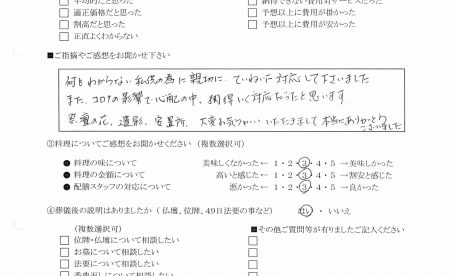 □ 平均的だと思った □ 納得できない費用対サービスだった
□ 適正価格だと思った □ 予想以上に費用が掛かった
□ 割高だと思った □ 予想以上に費用が安かった
□ 正直よくわからない
■ご指摘やご感想をお聞かせ下さい
何もわからない私達の為に親切に、ていねいな対応して下さいました
また、コロナの影響で心配の中、納得いく対応だったと思います。
祭壇の花、遺影、安置所、大変お気づかいいただきまして本当にありがとうございました
③料理についてご感想をお聞かせください（複数選択可）
● 料理の味について 美味しくなかった← 1・2・3・4・5 →美味しかった
● 料理の金額について 高いと感じた← 1・2・3・4・5 →割安と感じた
● 配膳スタッフの対応について 悪かった← 1・2・3・4・5 →良かった
④葬儀後の説明はありましたか（仏壇、位牌、49日法要の事など） はい・いいえ
（複数選択可） ■その他ご質問等が有りましたご記入ください
□ 位牌・仏壇について相談したい
□ お墓について相談したい
□ 法要について相談したい
□ 香典返しについて相談したい